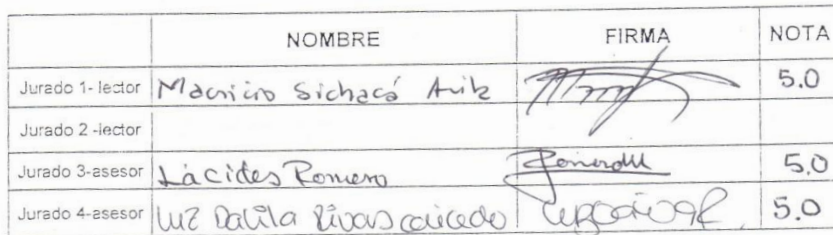 NOMBRE FIRMA NOTA
Jurado 1- lector Mauricio Sichacá Avila 5.0
Jurado 2 -lector
Jurado 3-asesor Lácides Romero 5.0
Jurado 4-asesor Luz Dalila Rivas caicedo 5.0